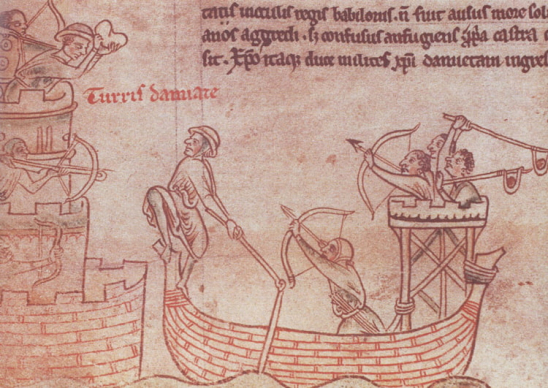 tatis uinculis regis babilonis. n̄ fuit ausus more soli
anos aggredi . sꝫ confusus aufugiens castra
sit. Xp̄o itaqꝫ duce milites xp̄i damietam ingres
Turris damiate